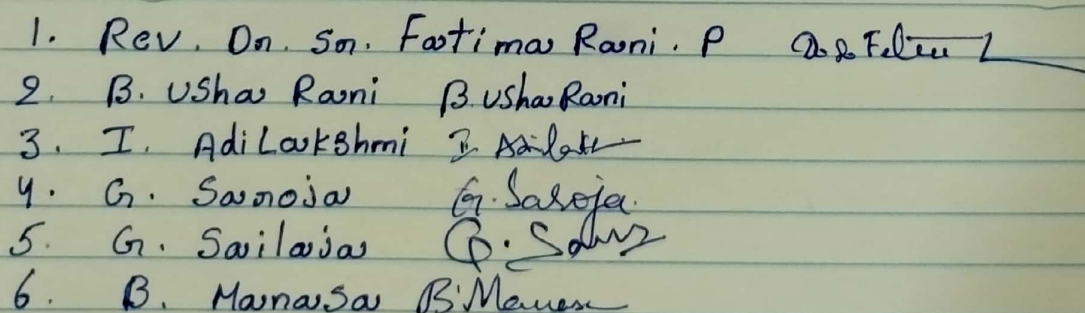 1. Rev. Dr. Sr. Fatima Rani. P
2. B. Usha Rani B. Usha Rani
3. I. Adi Lakshmi
4. G. Saroja G. Saroja.
5. G. Sailaja
6. B. Manasa